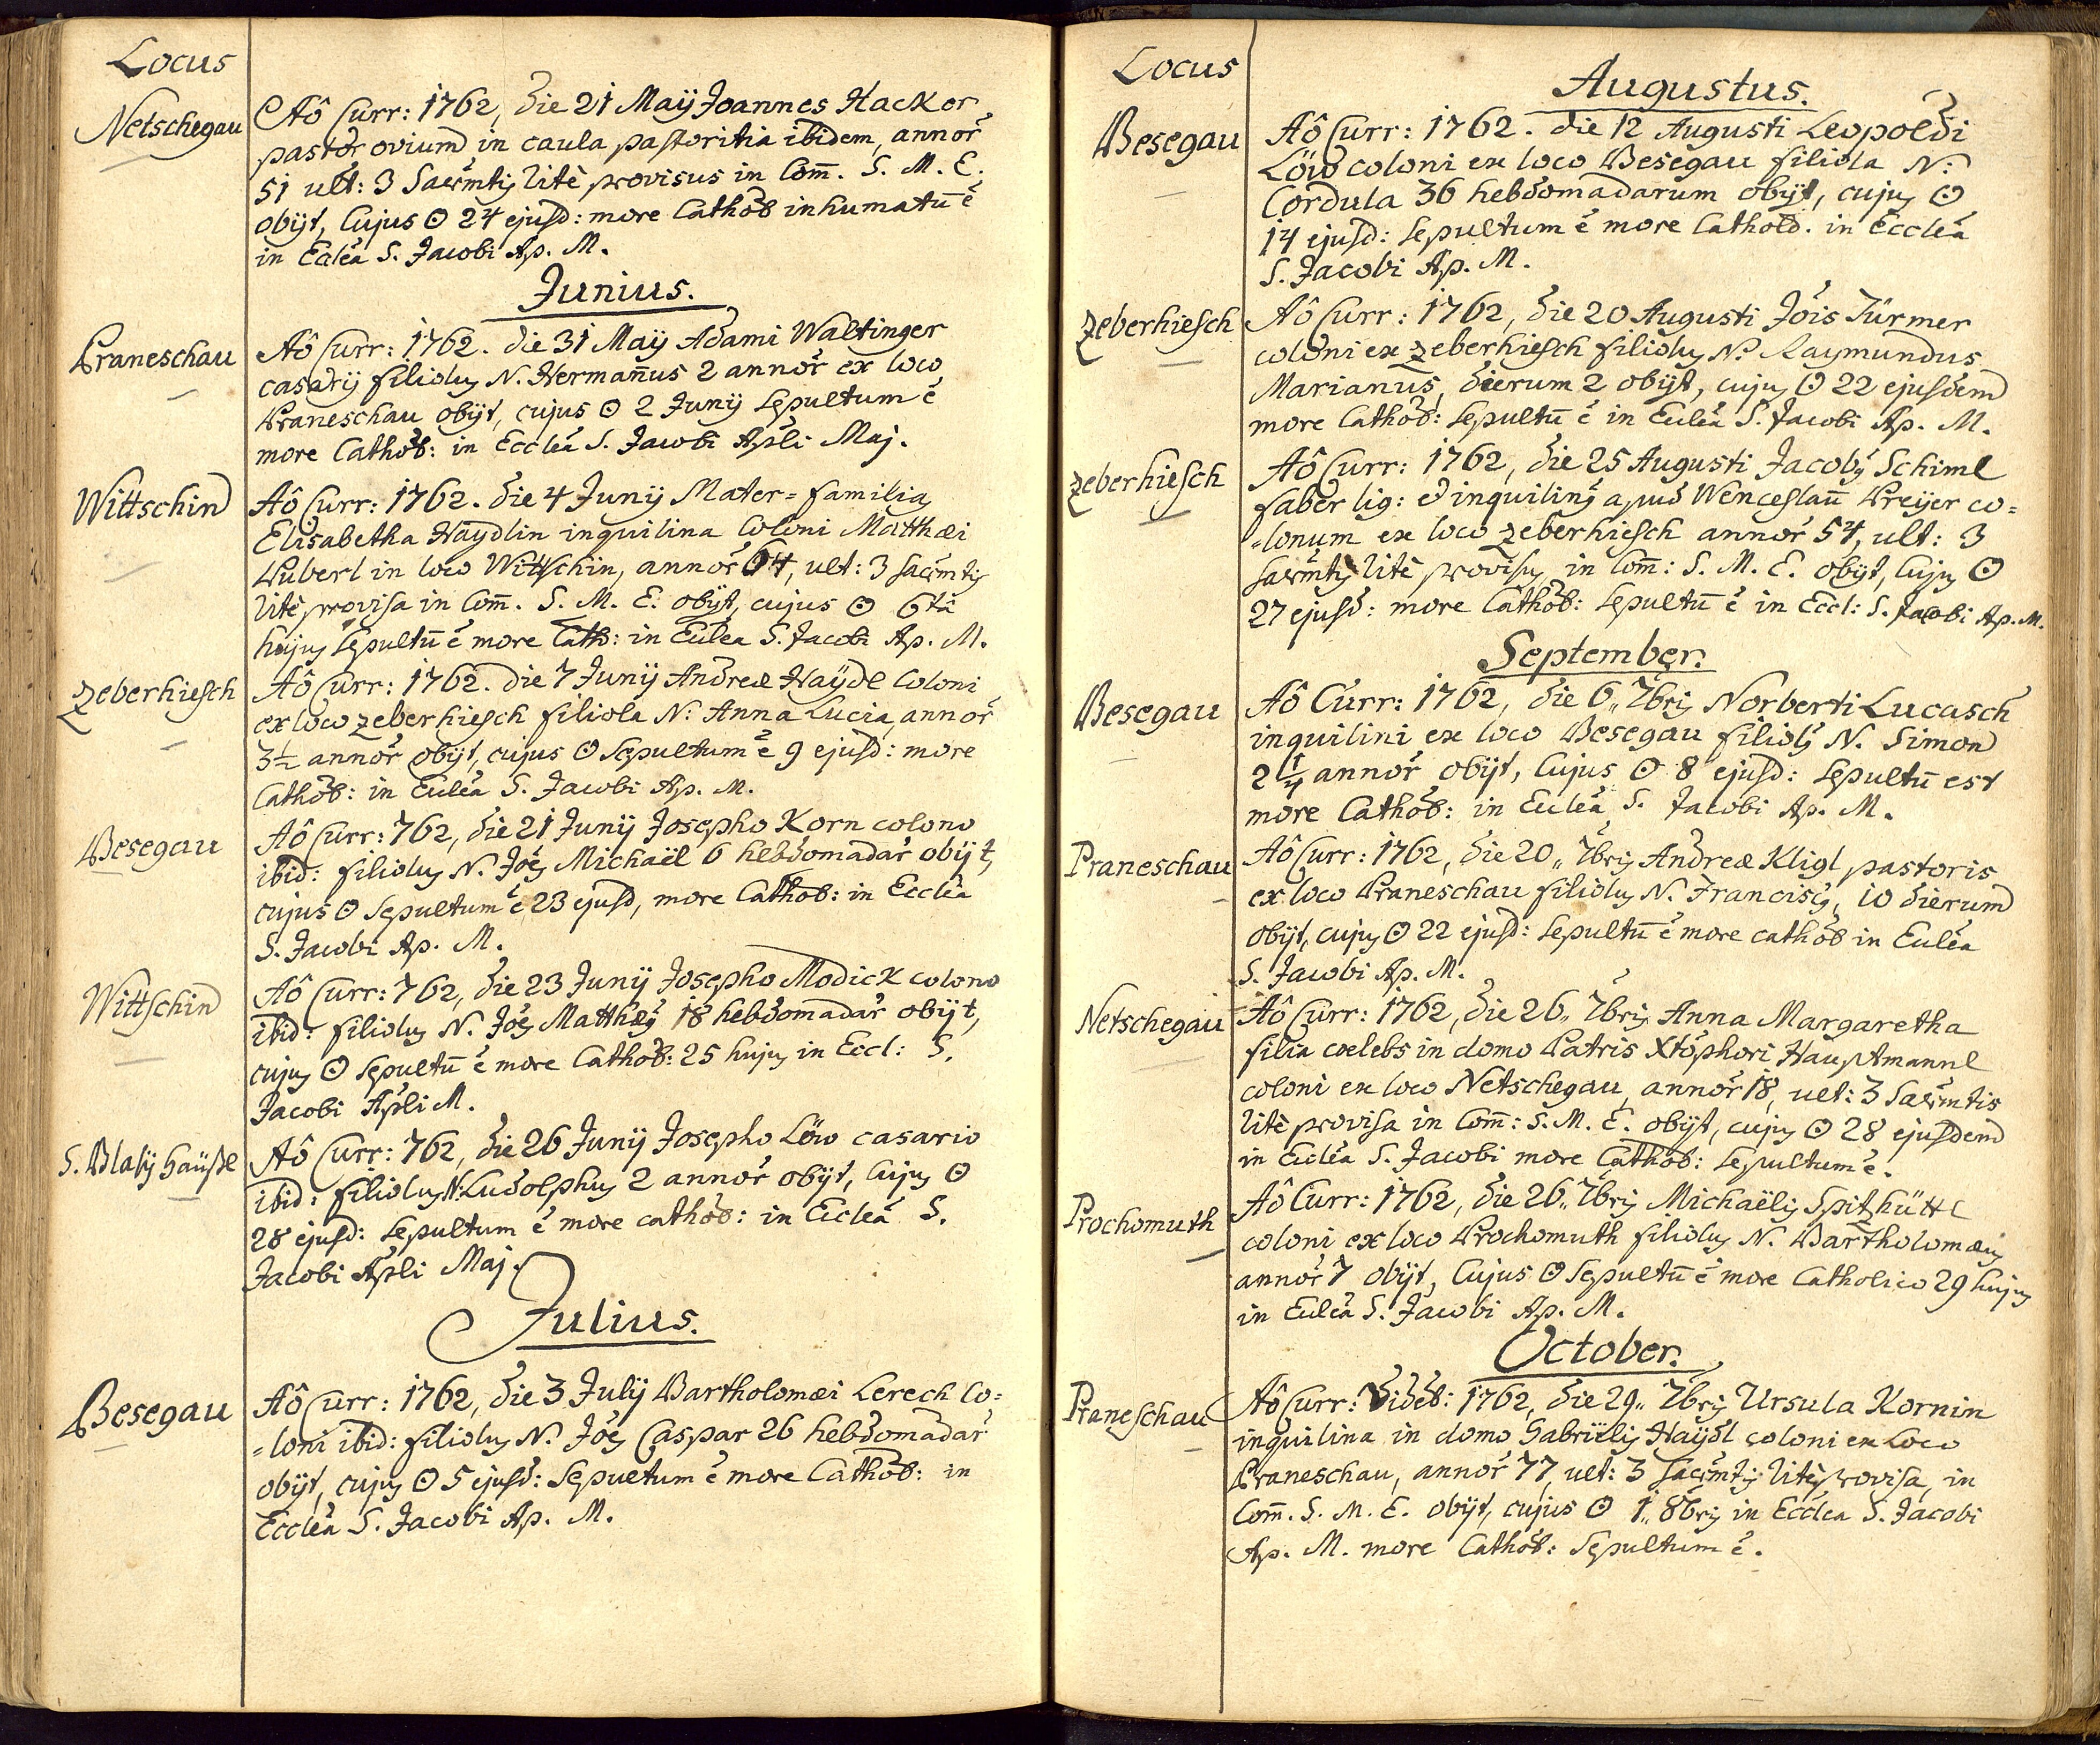 Locus
Netschegau
Aô Curr: 1762, die 21 Maÿ Joannes Hacker
pastor ovium in caula pastoritia ibidem, annoř
51 ult: 3 Sacr̃mtis litè provisus in Com̃. S. M. E.
obijt, Cujus ʘ 24 ejusd: more Cathol inhumatũ ẽ
in Eccleã S. Jacobi Ap. M.
Junius.
Praneschau
Aô Curr: 1762. die 31 Maÿ Adami Waltinger
casarij filiolus N. Hermañus 2 annoř ex loco
Praneschau obijt, cujus ʘ 2 Junÿ Sepultum ẽ
more Cathol: in Eccleã S. Jacobi Apli Maj.
Wittschin
Aô Curr: 1762. die 4 Junÿ Mater=familias
Elisabetha Haÿdlin inquilina Coloni Matthæi
Puberl in loco Wittschin, annoř 64, ult: 3 sacr̃mtis
litè provisa in Com̃. S. M. E. obijt, cujus ʘ 6ta
hujus Sepultũ ẽ more Cath: in Ecclea S. Jacobi Ap. M.
Zeberhiesch
Aô Curr: 1762. die 7 Junÿ Andreæ Haÿdl Coloni
ex loco Zeberhiesch filiola N: Anna Lucia, annoř
3½ annoř obijt, cujus ʘ Sepultum ẽ 9 ejusd: more
Cathol: in Eccleã S. Jacobi Ap. M.
Besegau
Aô Curr: 762, die 21 Junÿ Josepho Korn colono
ibid: filiolus N. Jões Michaël 6 hebdomadař obijt,
cujus ʘ Sepultum ẽ 23 ejusd, more Cathol: in Eccleã
S. Jacobi Ap. M.
Wittschin
Aô Curr: 762, die 23 Junÿ Josepho Modick colono
ibid: filiolus N. Jões Matthæus 18 hebdomadař obijt,
cujus ʘ Sepultũ ẽ more Cathol: 25 hujus in Eccl: S.
Jacobi Apli M.
S. Blasÿ Haüßl
Aô Curr: 762, die 26 Junÿ Josepho Löw casario
ibid: filiolus N: Ludolphus 2 annoř obijt, Cujus ʘ
28 ejusd: Sepultum ẽ more cathol: in Eccleã S.
Jacobi Apli Maj.
Julius.
Besegau
Aô Curr: 1762, die 3 Julÿ Bartholomæi Lerech Co=
=loni ibid: filiolus N. Jões Caspar 26 hebdomadař
obijt, cujus ʘ 5 ejusd: Sepultum ẽ more Cathol: in
Eccleã S. Jacobi Ap. M.
Locus
Augustus.
Besegau
Aô Curr: 1762. die 12 Augusti Leopoldi
Löw coloni ex loco Besegau filiola N:
Cordula 36 hebdomadarum obijt, cujus ʘ
14 ejusd: Sepultum ẽ more Cathold. in Eccleã
S. Jacobi Ap. M.
Zeberhiesch
Aô Curr: 1762, die 20 Augusti Jõis Türmer
coloni ex Zeberhiesch filiolus N: Raymundus
Marianus, dierum 2 obijt, cujus ʘ 22 ejusdem
more Cathol: Sepultũ ẽ in Eccleã S. Jacobi Ap. M.
Zeberhiesch
Aô Curr: 1762, die 25 Augusti Jacobus Schiml
faber lig: et inquilinus apud Wenceslaũ Preijer co=
=lonum ex loco Zeberhiesch annoř 54, ult: 3
Sacr̃mtis litè provisus in Com̃: S. M. E. obijt, Cujus ʘ
27 ejusd: more Cathol: Sepultũ ẽ in Eccl: S. Jacobi Ap. M.
September.
Besegau
Aô Curr: 1762, die 6„ 7bris Norberti Lucasch
inquilini ex loco Besegau filiolus N. Simon
2¼ annoř obijt, Cujus ʘ 8 ejusd: Sepultũ est
more Cathol: in Eccleã S. Jacobi Ap. M.
Praneschau
Aô Curr: 1762, die 20„ 7bris Andreæ Kligl pastoris
ex loco Praneschau filiolus N. Franciscus, 10 dierum
obijt, cujus ʘ 22 ejusd: Sepultũ ẽ more cathol in Eccleã
S. Jacobi Ap. M.
Netschegau
Aô Curr: 1762, die 26„ 7bris Anna Margaretha
filia cælebs in domo Patris Xtõphori Hauptmannl
coloni ex loco Netschegau, annoř 18, ult: 3 Sacr̃mtis
litè provisa in Com̃: S. M. E. obijt, cujus ʘ 28 ejusdem
in Eccleã S. Jacobi more Cathol: Sepultum ẽ.
Prochomuth
Aô Curr: 1762, die 26„ 7bris Michaëlis Spitzhüttl
coloni ex loco Prochomuth filiolus N. Bartholomæus
annoř 7 obijt, Cujus ʘ Sepultũ ẽ more Catholico 29 hujus
in Eccleã S. Jacobi Ap. M.
October.
Praneschau
Aô Curr: Videl: 1762, die 29„ 7bris Ursula Kornin
inquilina in domo Gabriëlis Haÿdl coloni ex Loco
Praneschau, annoř 77, ult: 3 Sacr̃mtis litè provisa, in
Com̃. S. M. E. obijt, cujus ʘ 1„ 8bris in Ecclea S. Jacobi
Ap. M. more Cathol: Sepultum ẽ.